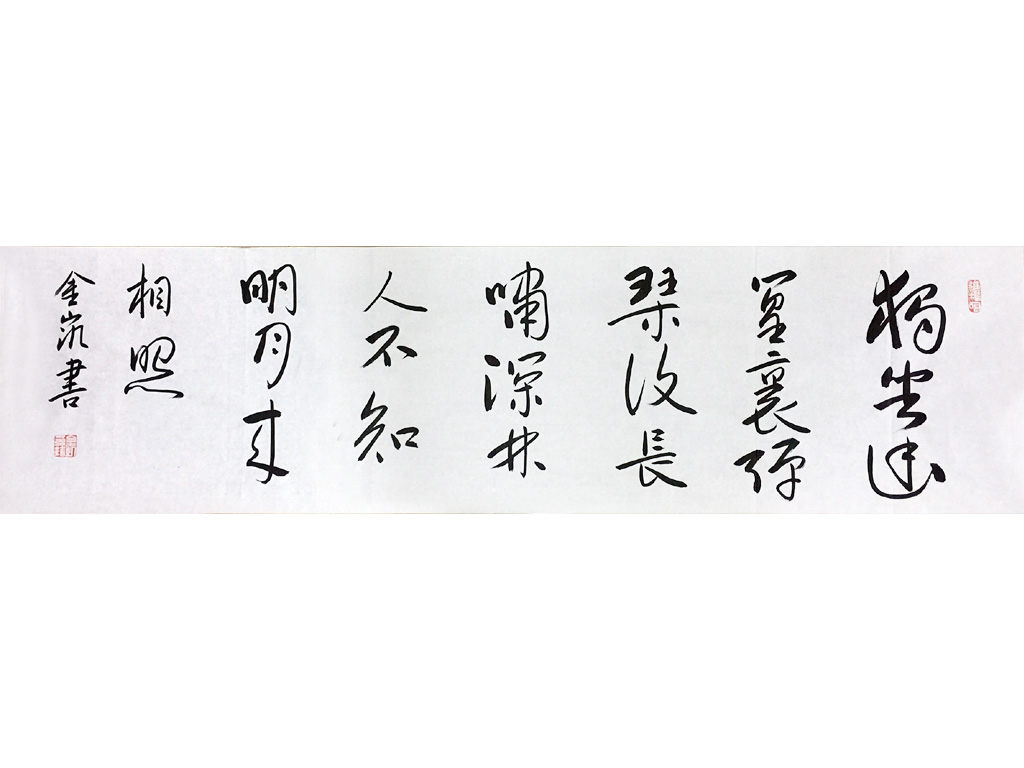 獨坐幽
篁裏彈
琴復長
嘯深林
人不知
明月來
相照
金書